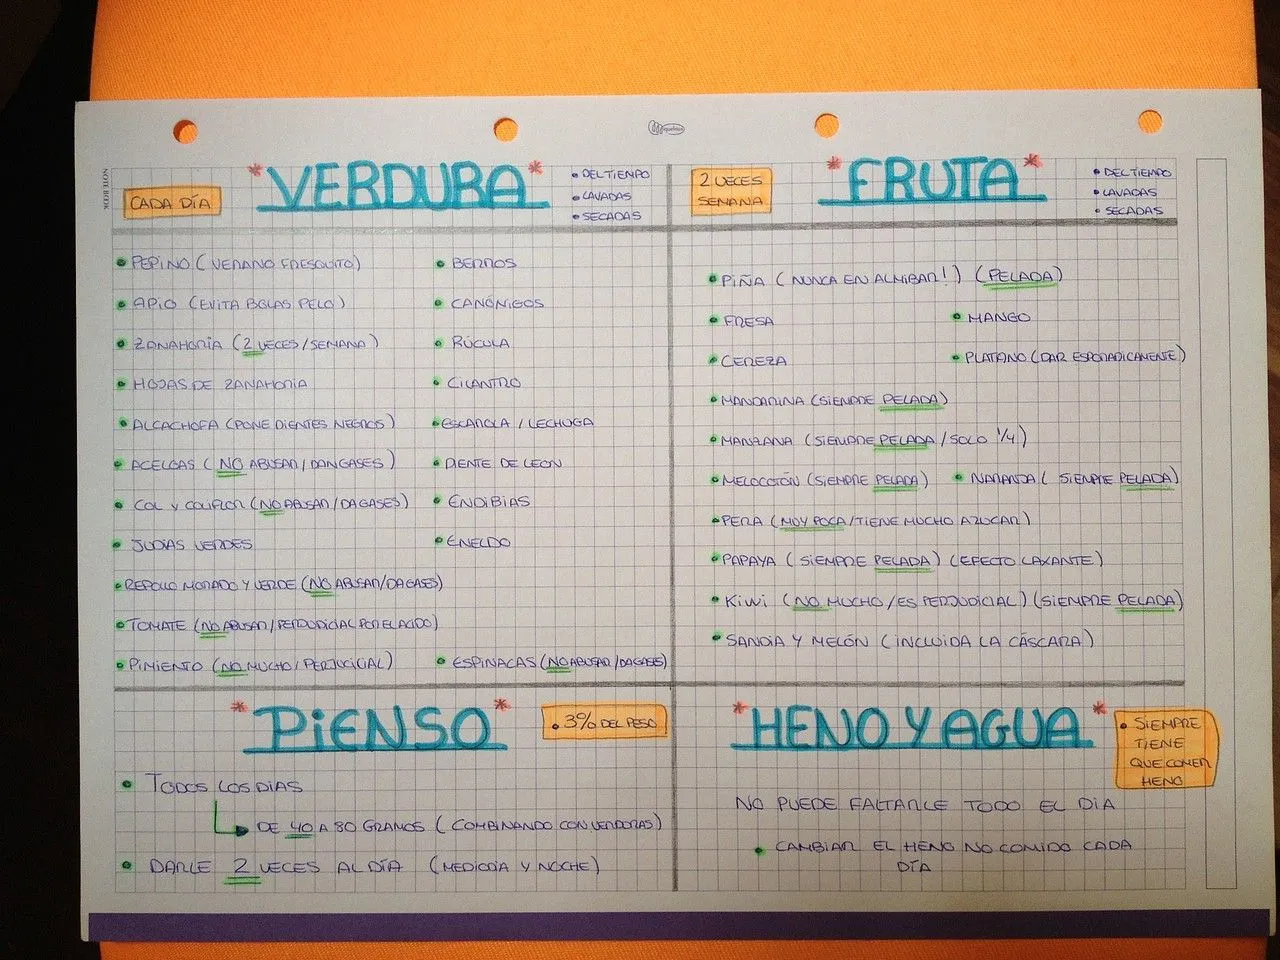 NOTE BOOK
CADA DÍA
*VERDURA*
• DEL TIEMPO
• LAVADAS
• SECADAS
• PEPINO (VERANO FRESQUITO)
• APIO (EVITA BOLAS PELO)
• ZANAHORIA (2 VECES/SEMANA)
• HOJAS DE ZANAHORIA
• ALCACHOFA (PONE DIENTES NEGROS)
• ACELGAS (NO ABUSAR/DAN GASES)
• COL Y COLIFLOR (NO ABUSAR/DA GASES)
• JUDÍAS VERDES
• REPOLLO MORADO Y VERDE (NO ABUSAR/DA GASES)
• TOMATE (NO ABUSAR/PERJUDICIAL POR EL ACIDO)
• PIMIENTO (NO MUCHO/PERJUCICIAL)
• BERROS
• CANÓNIGOS
• RÚCULA
• CILANTRO
• ESCAROLA / LECHUGA
• DIENTE DE LEON
• ENDIBIAS
• ENELDO
• ESPINACAS (NO ABUSAR/DA GASES)
2 VECES
SEMANA
*FRUTA*
• DEL TIEMPO
• LAVADAS
• SECADAS
• PIÑA (NUNCA EN ALMIBAR!) (PELADA)
• FRESA
• MANGO
• CEREZA
• PLATANO (DAR ESPORADICAMENTE)
• MANDARINA (SIEMPRE PELADA)
• MANZANA (SIEMPRE PELADA/SOLO 1/4)
• MELOCOTÓN (SIEMPRE PELADA)
• NARANJA (SIEMPRE PELADA)
• PERA (MUY POCA/TIENE MUCHO AZUCAR)
• PAPAYA (SIEMPRE PELADA) (EFECTO LAXANTE)
• KIWI (NO MUCHO/ES PERJUDICIAL) (SIEMPRE PELADA)
• SANDÍA Y MELÓN (INCLUIDA LA CÁSCARA)
*PIENSO*
• 3% DEL PESO
• TODOS LOS DÍAS
DE 40 A 80 GRAMOS (COMBINANDO CON VERDURAS)
• DARLE 2 VECES AL DÍA (MEDIODÍA Y NOCHE)
*HENO Y AGUA*
• SIEMPRE
TIENE
QUE COMER
HENO
NO PUEDE FALTARLE TODO EL DÍA
• CAMBIAR EL HENO NO COMIDO CADA
DÍA